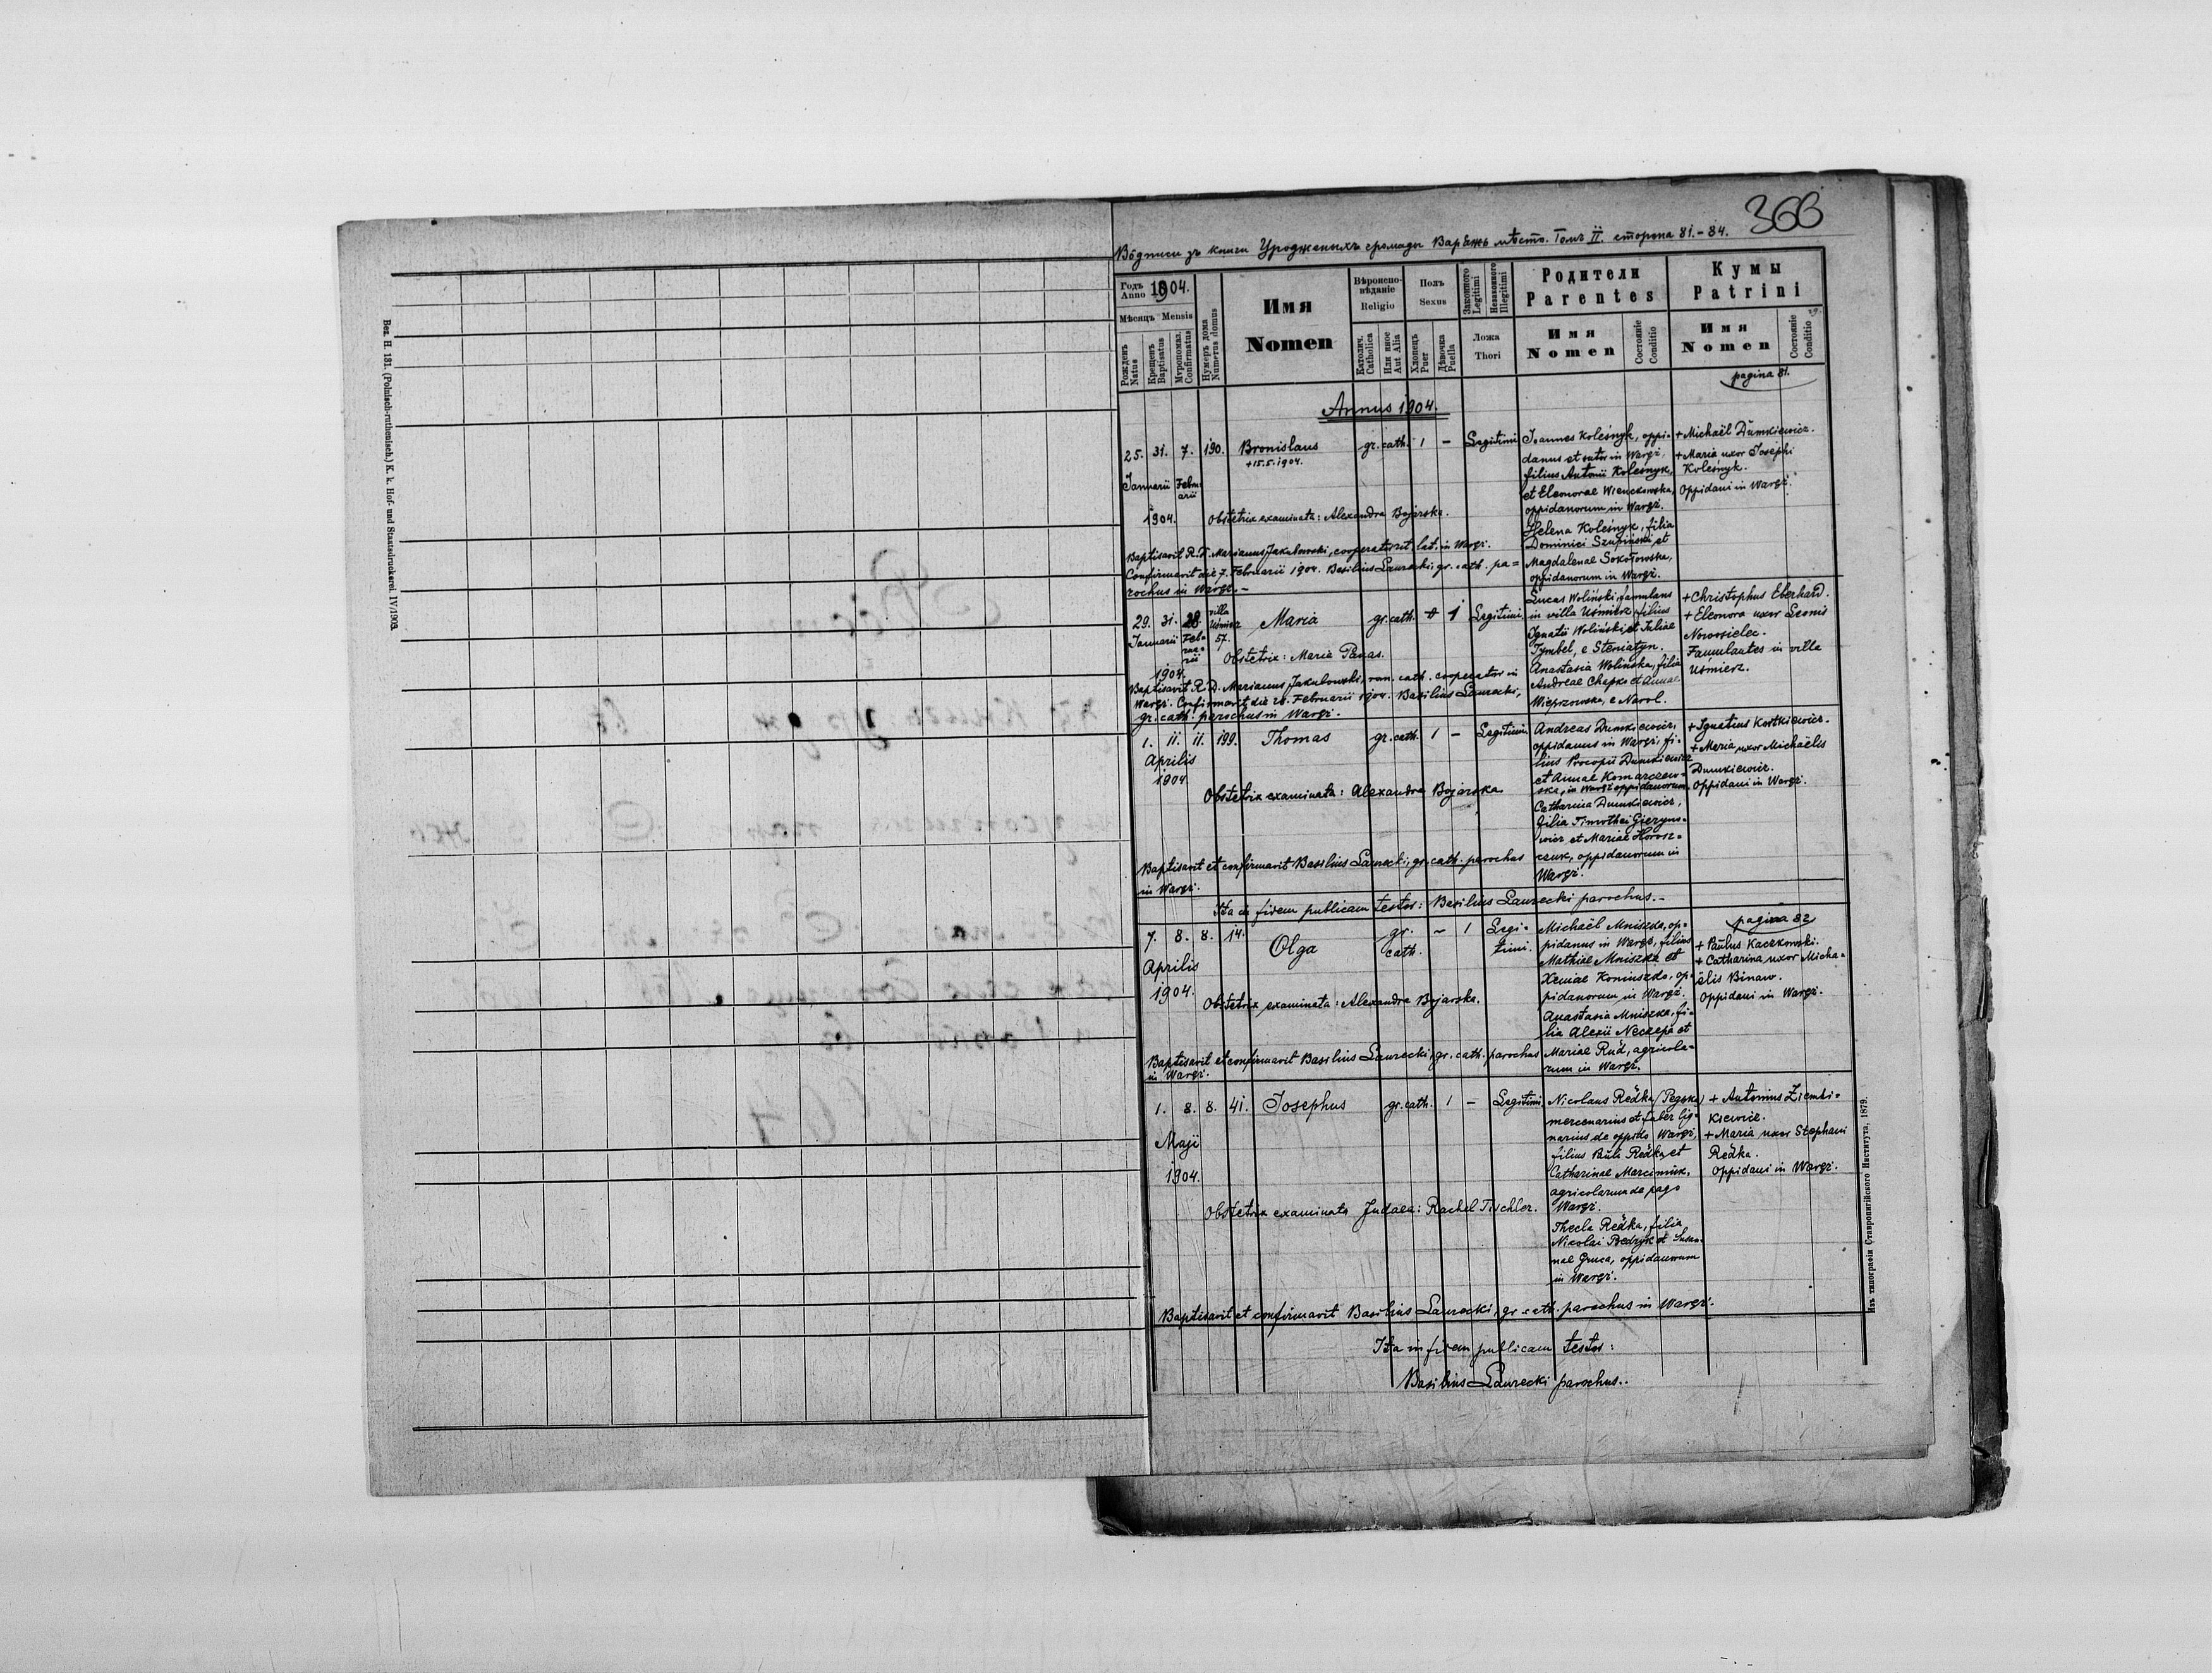 366
Водписи зъ книги Урожденыхъ громады Варѣжъ мѣсто. Томъ II. сторона 81.-84.
Годъ Anno 1904.
Мѣсяцъ Mensis
Рожденъ Natus
Крещенъ Baptisatus
Мѵропомаз. Confirmatus
Нумеръ дома Numerus domus
Имя Nomen
Вѣроисповѣданіе Religio
Католич. Catholica
Или иное Aut Alia
Полъ Sexus
Хлопецъ Puer
Дѣвочка Puella
Законного Legitimi
Незаконного Illegitimi
Ложа Thori
Родители Parentes
Имя Nomen
Состояніе Conditio
Кумы Patrini
Имя Nomen
Состояніе Conditio
pagina 81.
Annus 1904.
25. 31. 7. 190. Bronislaus gr. cath. 1 - Legitimi
+15.5.1904.
Januarii Februarii
1904.
Obstetrix examinata: Alexandra Bojarska.
Baptisavit R. D. Marianus Jakubowski, cooperator rit. lat. in Waręż.
Confirmavit die 7. Februarii 1904. Basilius Laurecki, gr. cath. pa=
rochus in Waręż.-
Joannes Koleśnyk, oppi-
danus et sutor in Waręż,
filius Antonii Koleśnyk,
et Eleonorae Wienckowska,
oppidanorum in Waręż.
Helena Koleśnyk, filia
Dominici Szupiński et
Magdalenae Sokołowska,
oppidanorum in Waręż.
+ Michaël Dumkiewicz.
+ Maria uxor Josephi
Koleśnyk.
Oppidani in Waręż.
29. 31. 28. villa Uśmierz 57. Maria gr. cath. 1 Legitimi
Januarii Februarii
1904.
Obstetrix: Maria Panas.
Baptisavit R. D. Marianus Jakubowski, rom. cath. cooperator in
Waręż. Confirmavit die 28. Februarii 1904. Basilius Laurecki,
gr. cath. parochus in Waręż.
Lucas Woliński, famulans
in villa Uśmierz, filius
Ignatii Woliński et Juliae
Tymbel, e Steniatyn.
Anastasia Wolińska, filia
Andreae Chapko et Annae
Wieprzowska, e Narol.
+ Christophus Eberhard.
+ Eleonora uxor Leonis
Nowosielec.
Famulantes in villa
Uśmierz.
1. 11. 11. 199. Thomas gr. cath. 1 - Legitimi
Aprilis
1904
Obstetrix examinata: Alexandra Bojarska
Baptisavit et confirmavit Basilius Laurecki, gr. cath. parochus
in Waręż.
Andreas Dumkiewicz,
oppidanus in Waręż, fi-
lius Procopii Dumkiewicz
et Annae Komarczew-
ska, in Waręż oppidanorum.
Catharina Dumkiewicz,
filia Timothei Gierym-
wicz et Mariae Horosz=
czuk, oppidanorum in
Waręż.
+ Ignatius Kostkiewicz.
+ Maria, uxor Michaëlis
Dumkiewicz.
Oppidani in Waręż.
Ita in fidem publicam testor: Basilius Laurecki parochus.-
pagina 82
7. 8. 8. 14. Olga gr. cath. - 1 Legitimi.
Aprilis
1904.
Obstetrix examinata: Alexandra Bojarska.
Baptisavit et confirmavit Basilius Laurecki, gr. cath. parochus
in Waręż.
Michaël Mniszka, op-
pidanus in Waręż, filius
Mathiae Mniszka et
Xeniae Koniuszko, op-
pidanorum in Waręż.
Anastasia Mniszka, fi-
lia Alexii Neczepa et
Mariae Rud, agricola-
rum in Waręż.
+ Paulus Kaczkowski.
+ Catharina uxor Micha=
ëlis Binaw.
Oppidani in Waręż.
1. 8. 8. 41. Josephus gr. cath. 1 - Legitimi
Maji
1904.
Obstetrix examinata Judaea: Rachel Tischler.
Nicolaus Redka (Pezska)
mercenarius et faber lig-
narius de oppido Waręż,
filius Pauli Redka et
Catharinae Marciniuk,
agricolarum de pago
Waręż.
Thecla Redka, filia
Nikolai Bedryk et Susan-
nae Gruca, oppidanorum
in Waręż.
+ Antonius Ziembi=
kiewicz.
+ Maria uxor Stephani
Redka.
Oppidani in Waręż.
Baptisavit et confirmavit Basilius Laurecki, gr. cath. parochus in Waręż.
Ita in fidem publicam testor:
Basilius Laurecki parochus.
Bez. H. 131. (Polnisch-ruthenisch.) K. k. Hof- und Staatsdruckerei. IV/1903.
Изъ типографіи Ставропигійского Института, 1879.